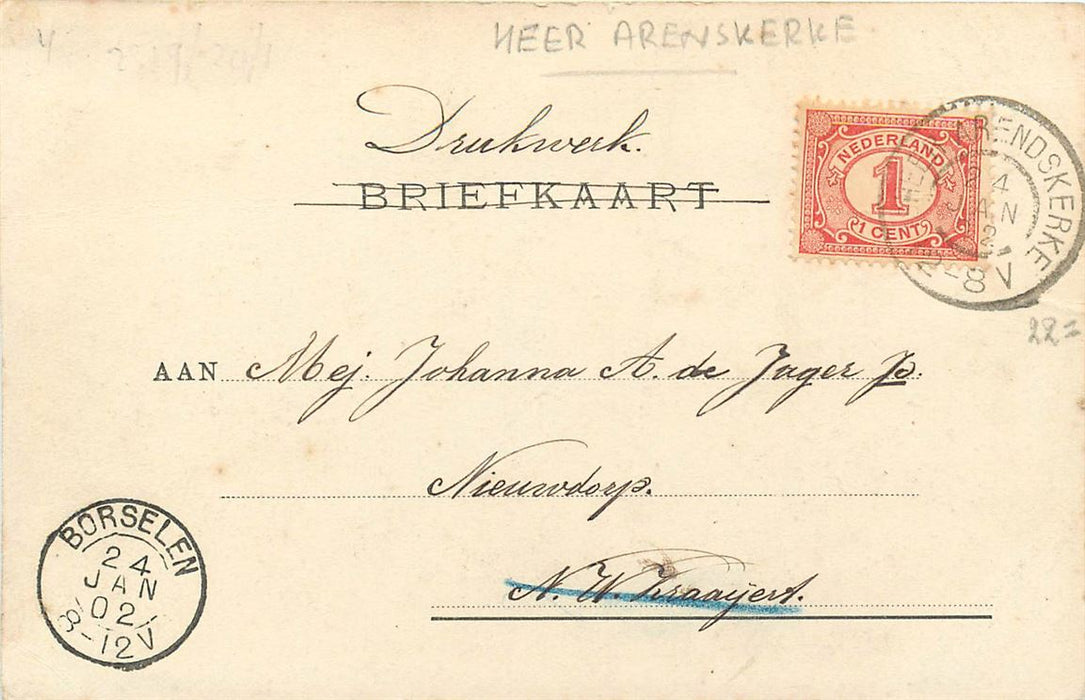 HEER ARENSKERKE
Drukwerk.
BRIEFKAART
NEDERLAND
1
1 CENT
ARENDSKERKE
24
JAN
02
-8V
22=
AAN Mej. Johanna A. de Jager Jz.
Nieuwdorp.
N. W. Kraayert.
BORSELEN
24
JAN
02
8-12V